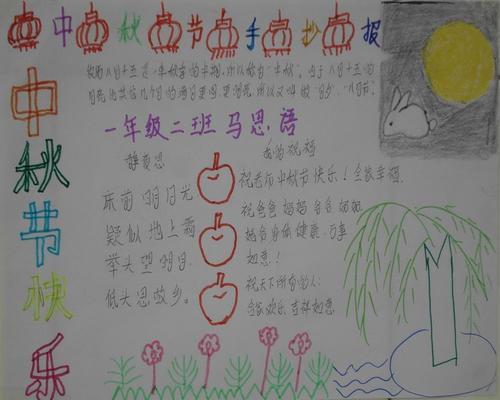 中秋节手抄报
中秋节快乐
农历八月十五是一年秋季的中期,所以称为“中秋”。由于八月十五的
月亮比其他几个月的满月更圆,更明亮,所以又叫做“月夕”,“八月节”。
一年级二班 马思语
静夜思
床前明月光
疑似地上霜
举头望明月
低头思故乡。
我的祝福
祝老师中秋节快乐!全家幸福
祝爸爸妈妈爷爷奶奶
身体健康 万事
如意!
祝天下所有的人:
全家欢乐 吉祥如意